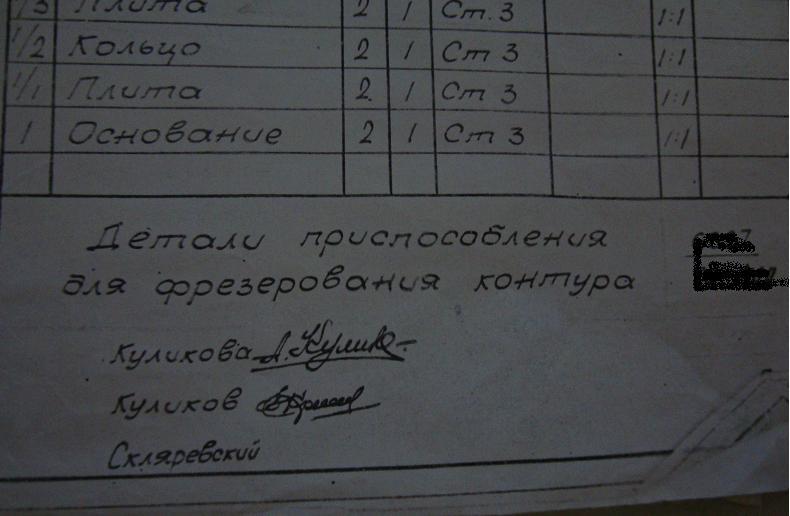 1/3 Плита 2 1 Ст. 3 1:1
1/2 Кольцо 2 1 Ст 3 1:1
1/1 Плита 2. 1 Ст 3 1:1
1 Основание 2 1 Ст 3 1:1
Детали приспособления
для фрезерования контура
Куликова А. Кулик
Куликов
Скляревский